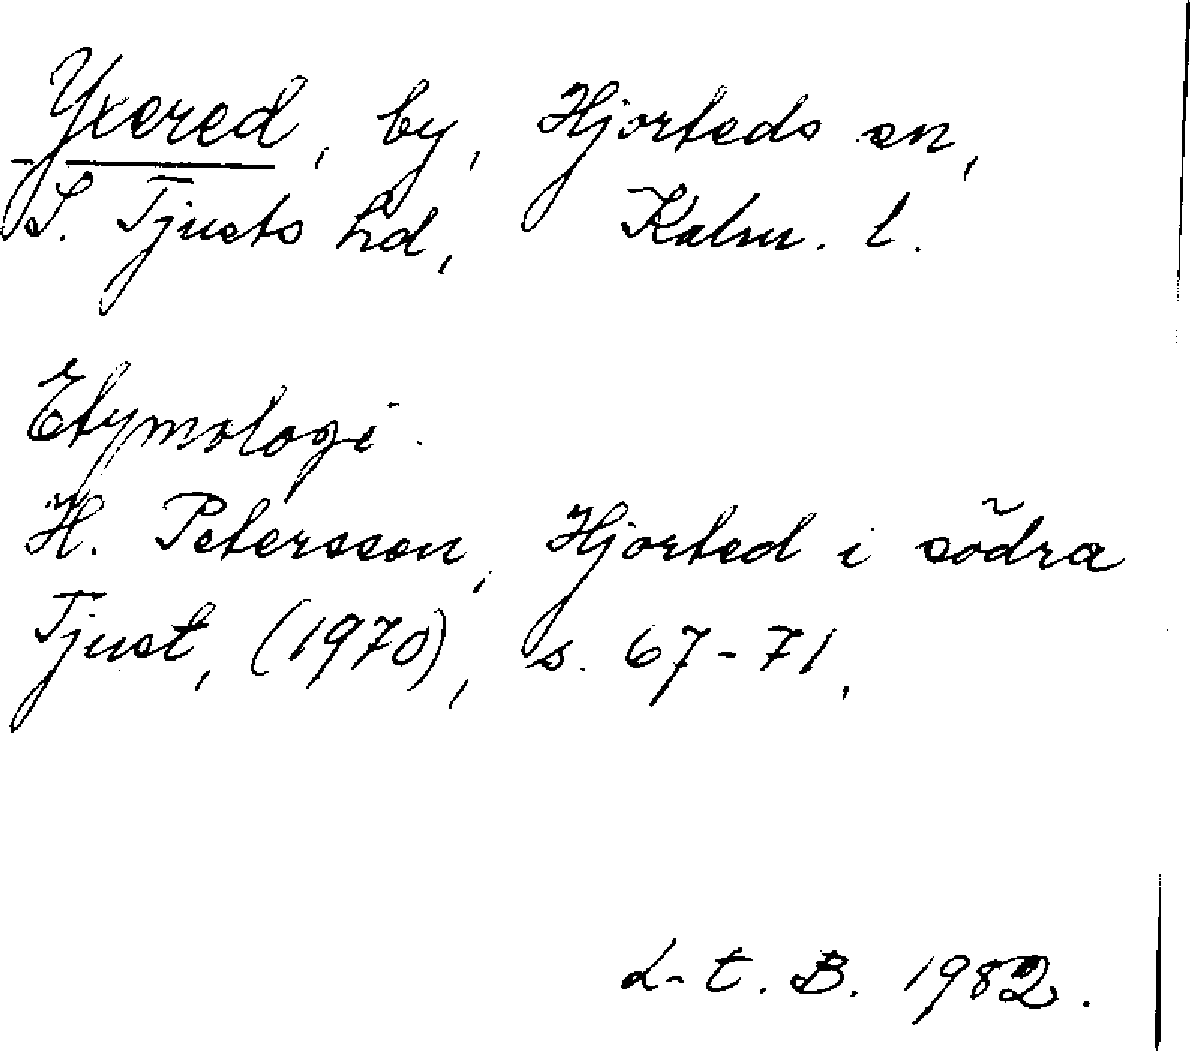 Yxered, by, Hjorteds sn,
S. Tjusts hd, Kalm. l.
Etymologi.
H. Petersson, Hjorted i södra
Tjust, (1970), s. 67-71.
L-t. B. 1982.